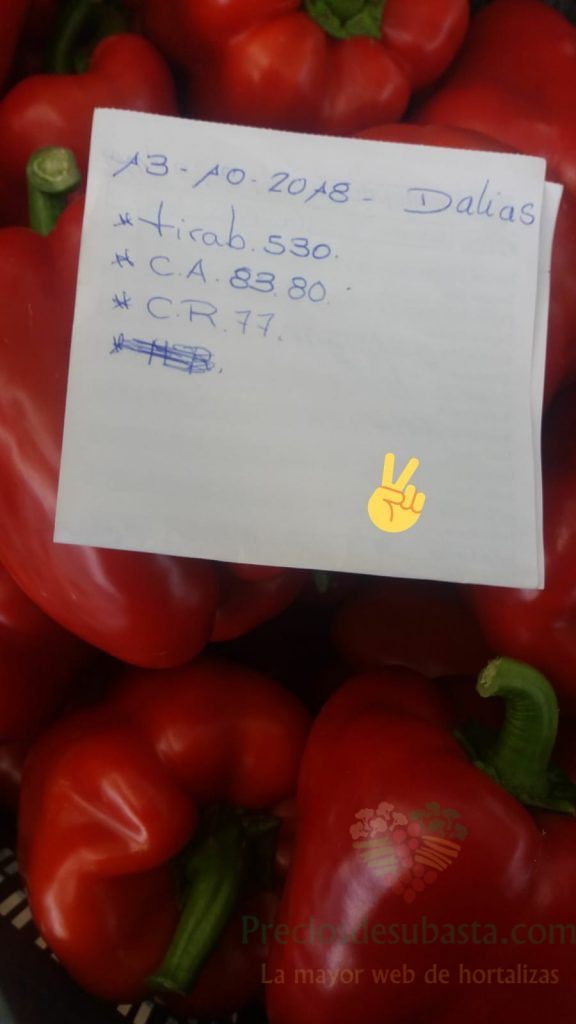 13-10-2018- Dalias
* tirab. 530.
* C.A. 83.80.
* C.R. 77.
Preciosdesubasta.com
La mayor web de hortalizas